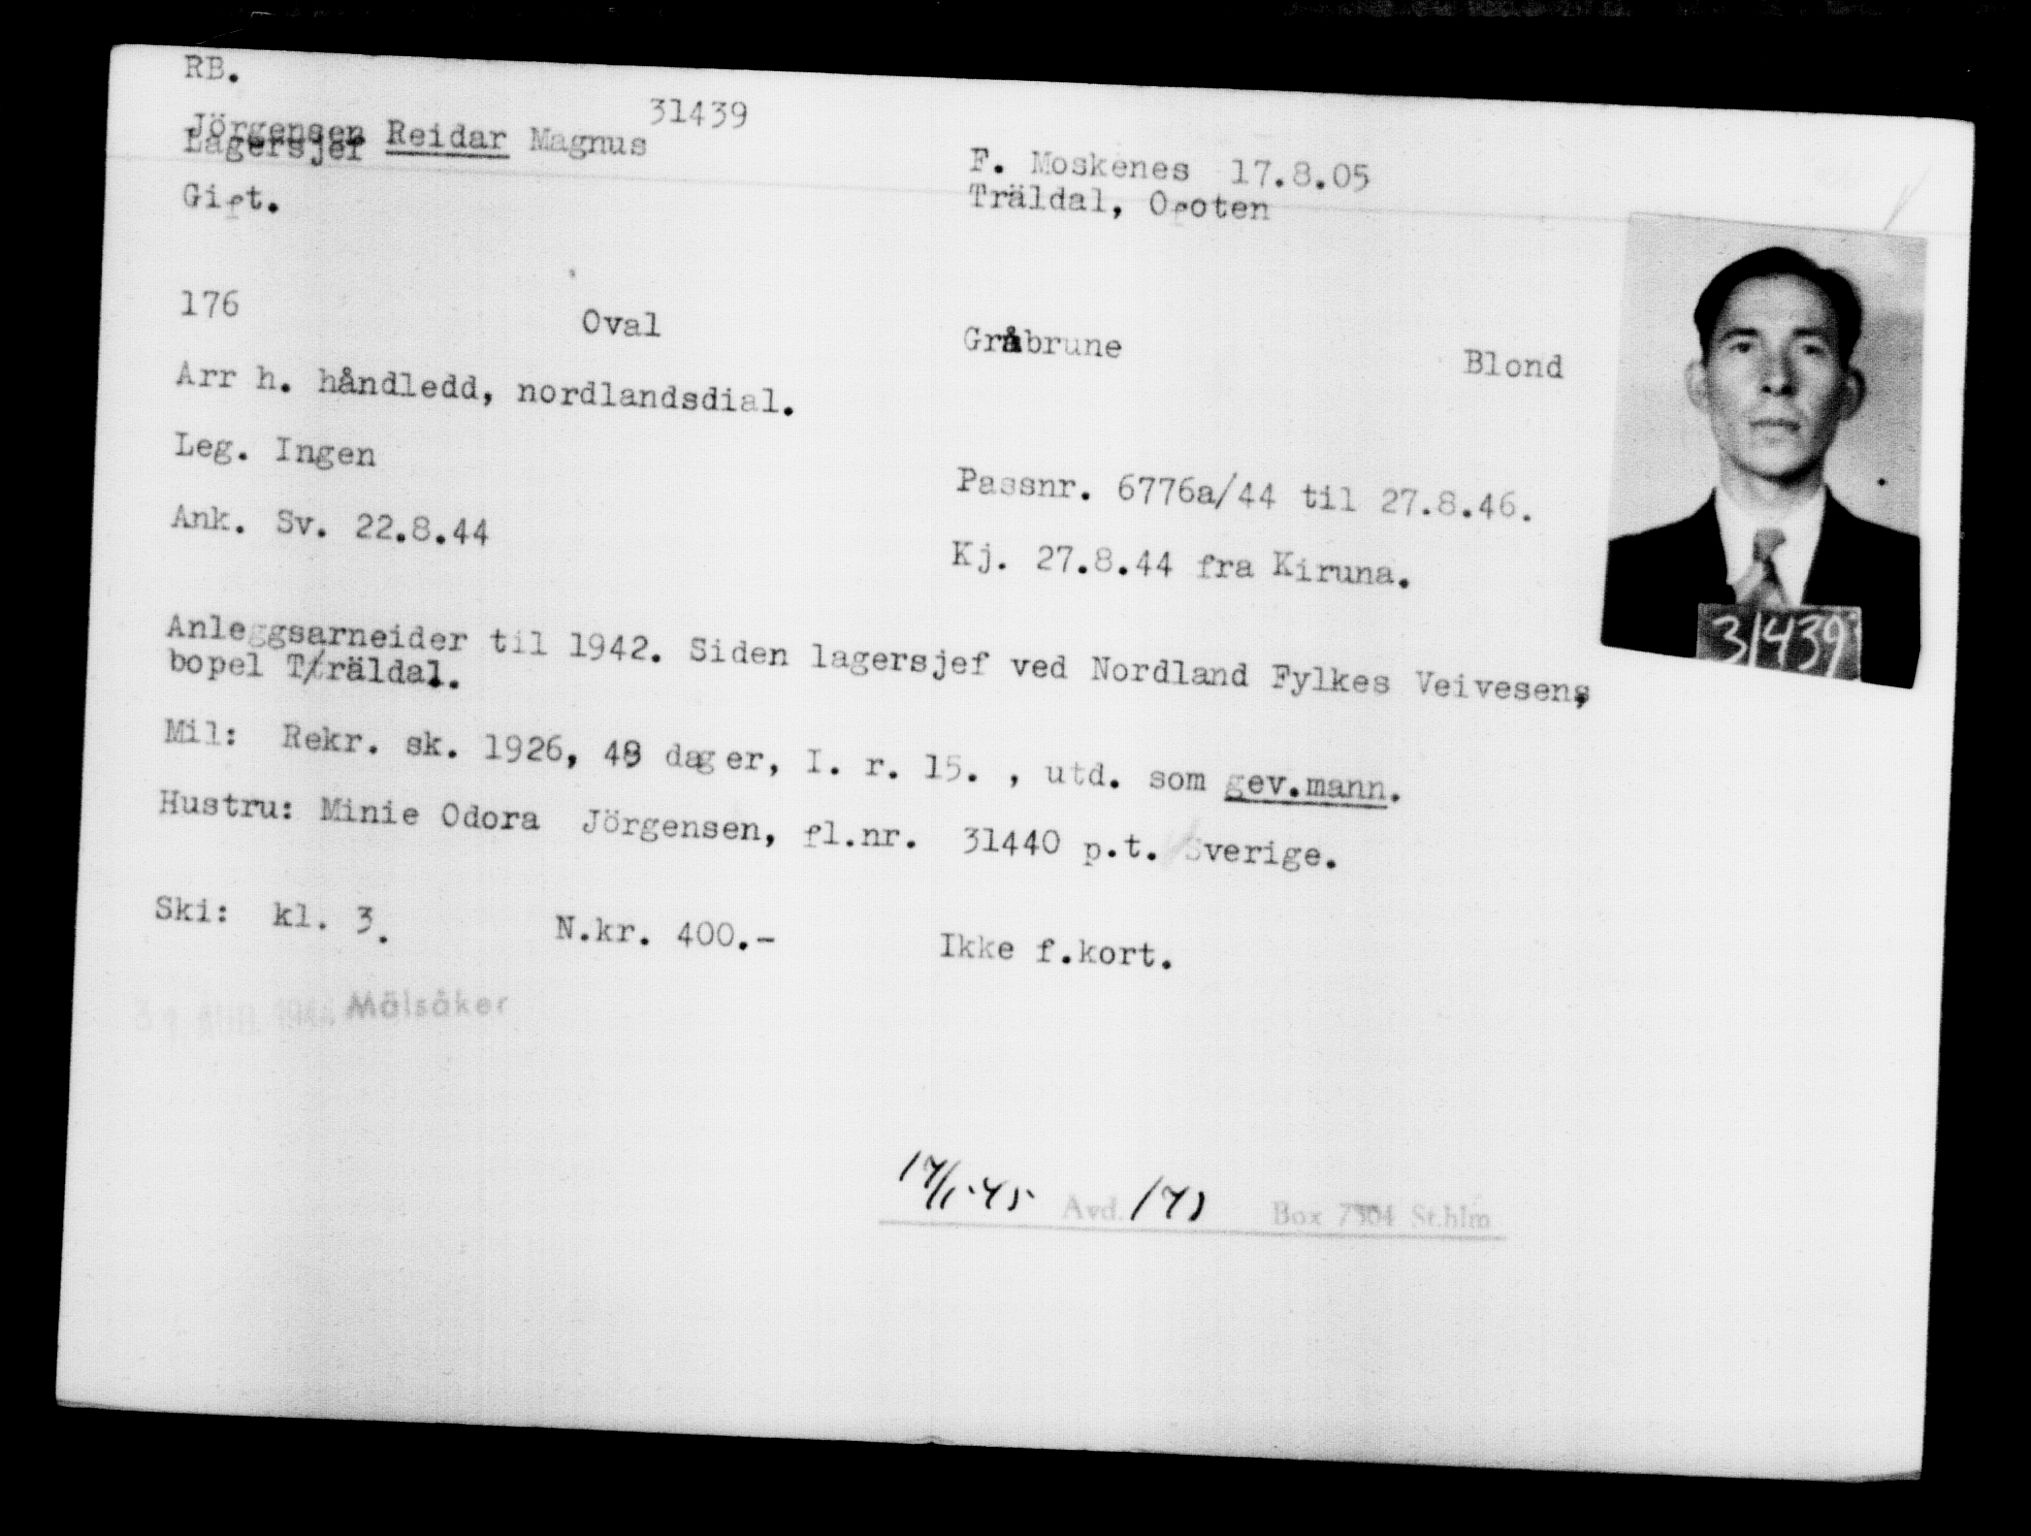 RB.
31439
Jörgensen Reidar Magnus
Lagersjef
F. Moskenes 17.8.05
Gift.
Träldal, Ofoten
176
Oval
Gråbrune
Blond
Arr h. håndledd, nordlandsdial.
Leg. Ingen
Passnr. 6776a/44 til 27.8.46.
Ank. Sv. 22.8.44
Kj. 27.8.44 fra Kiruna.
31439
Anleggsarneider til 1942. Siden lagersjef ved Nordland Fylkes Veivesen,
bopel Träldal.
Mil: Rekr. sk. 1926, 48 dager, I. r. 15. , utd. som gev.mann.
Hustru: Minie Odora Jörgensen, fl.nr. 31440 p.t. Sverige.
Ski: kl. 3.
N.kr. 400.-
Ikke f.kort.
31 AUG. 1944 Mälsåker
Avd. Box 7304 St.hlm